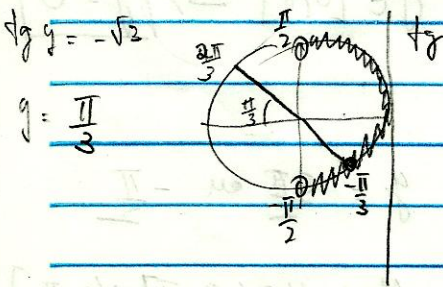 tg y = -√3
y = π/3
2π/3
π/2
π/3
-π/3
-π/2
tg